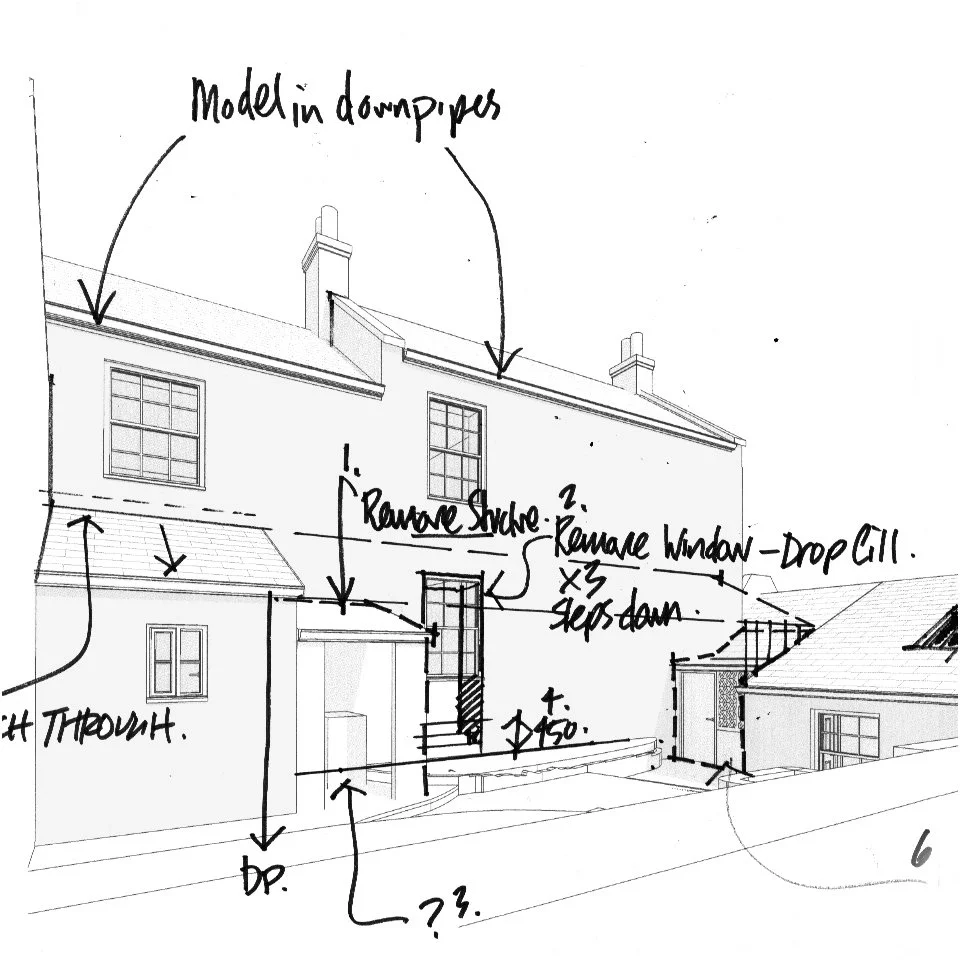 Model in downpipes
1.
Remove Structure.
2.
Remove Window – Drop Cill.
x3
steps down.
4.
450.
THROUGH.
DP.
? 3.
6